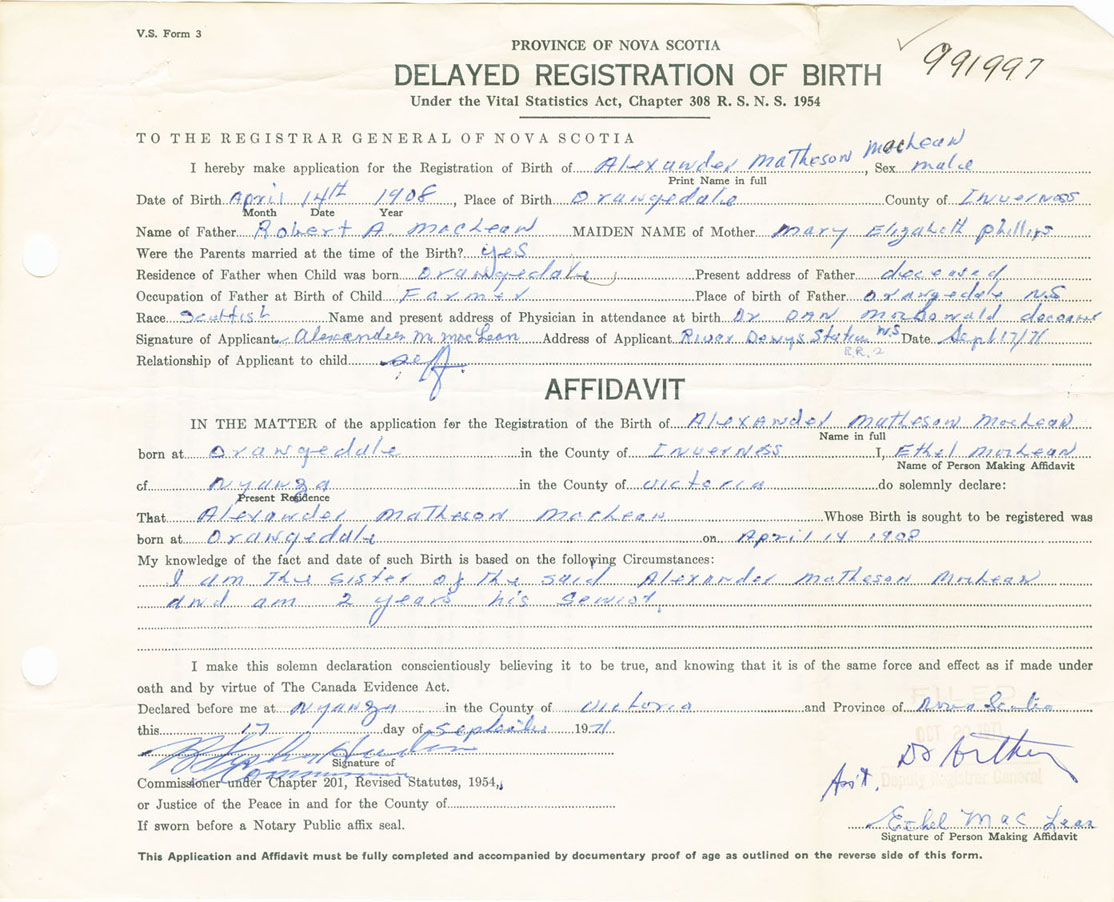 V.S. Form 3
991997
PROVINCE OF NOVA SCOTIA
DELAYED REGISTRATION OF BIRTH
Under the Vital Statistics Act, Chapter 308 R. S. N. S. 1954
TO THE REGISTRAR GENERAL OF NOVA SCOTIA
I hereby make application for the Registration of Birth of Alexander Matheson MacLean, Sex male
Print Name in full
Date of Birth April 14th 1908, Place of Birth Orangedale County of Inverness
Month Date Year
Name of Father Robert A. MacLean MAIDEN NAME of Mother Mary Elizabeth Phillips
Were the Parents married at the time of the Birth? yes
Residence of Father when Child was born Orangedale Present address of Father deceased
Occupation of Father at Birth of Child Farmer Place of birth of Father Orangedale N.S
Race Scottish Name and present address of Physician in attendance at birth Dr DAN MacDonald deceased
Signature of Applicant Alexander M MacLean Address of Applicant River Denys Station N.S Date Sept 17/71
R.R. 2
Relationship of Applicant to child self
AFFIDAVIT
IN THE MATTER of the application for the Registration of the Birth of Alexander Matheson MacLean
Name in full
born at Orangedale in the County of Inverness I, Ethel MacLean
Name of Person Making Affidavit
of Nyanza in the County of Victoria do solemnly declare:
Present Residence
That Alexander Matheson MacLean Whose Birth is sought to be registered was
born at Orangedale on April 14 1908
My knowledge of the fact and date of such Birth is based on the following Circumstances:
I am the sister of the said Alexander Matheson MacLean
and am 2 years his senior.
I make this solemn declaration conscientiously believing it to be true, and knowing that it is of the same force and effect as if made under
oath and by virtue of The Canada Evidence Act.
FILED
Declared before me at Nyanza in the County of Victoria and Province of Nova Scotia
this 17 day of September 1971
OCT
Signature of
Commissioner under Chapter 201, Revised Statutes, 1954,
Ass't. Deputy Registrar General
or Justice of the Peace in and for the County of
Ethel MacLean
If sworn before a Notary Public affix seal.
Signature of Person Making Affidavit
This Application and Affidavit must be fully completed and accompanied by documentary proof of age as outlined on the reverse side of this form.